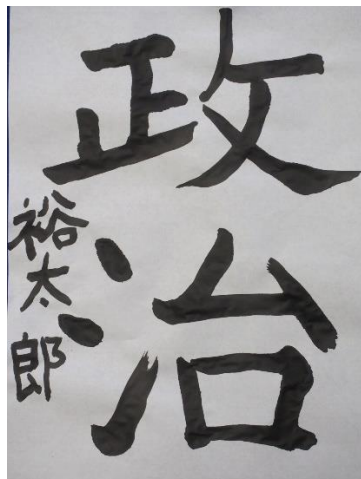 政治
裕太郎